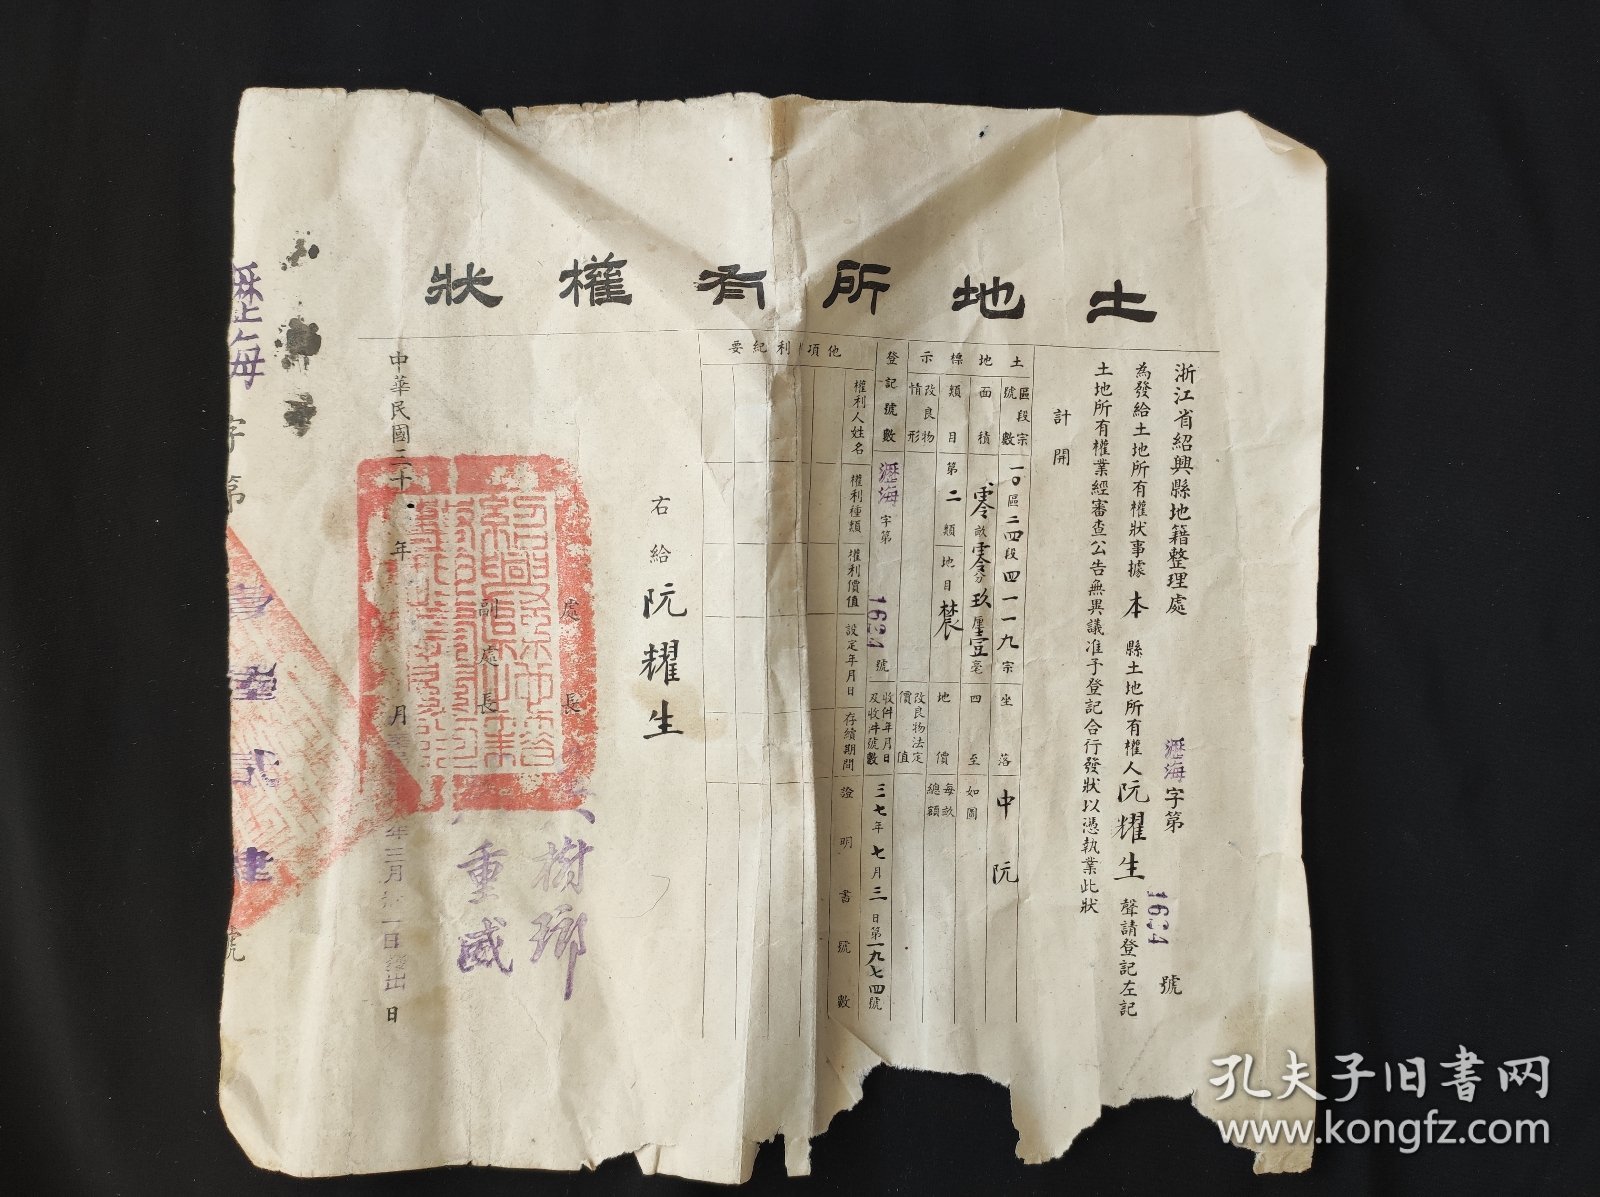 土地所有權狀
浙江省紹興縣地籍整理處
瀝海字第1634號
為發給土地所有權狀事據本縣土地所有權人阮耀生聲請登記左記
土地所有權業經審查公告無異議准予登記合行發狀以憑執業此狀
計開
土地標示
區段宗號數 一〇區二四段四一一九宗 坐落 中阮
面積 零畝零分玖厘壹毫 四至 如圖
類目 第二類地目 地價 每畝 總額
改良物情形 改良物法定價值
登記號數 瀝海字第1634號 收件年月日及收件號數 三七年七月三日第一九七四號
他項權利紀要
權利人姓名 權利種類 權利價值 設定年月日 存續期間 證明書號數
右給 阮耀生
處長
樹
副處長
重威
中華民國三十 年 月
年三月 一日發出
日
瀝海字第
號
孔夫子旧書网
www.kongfz.com